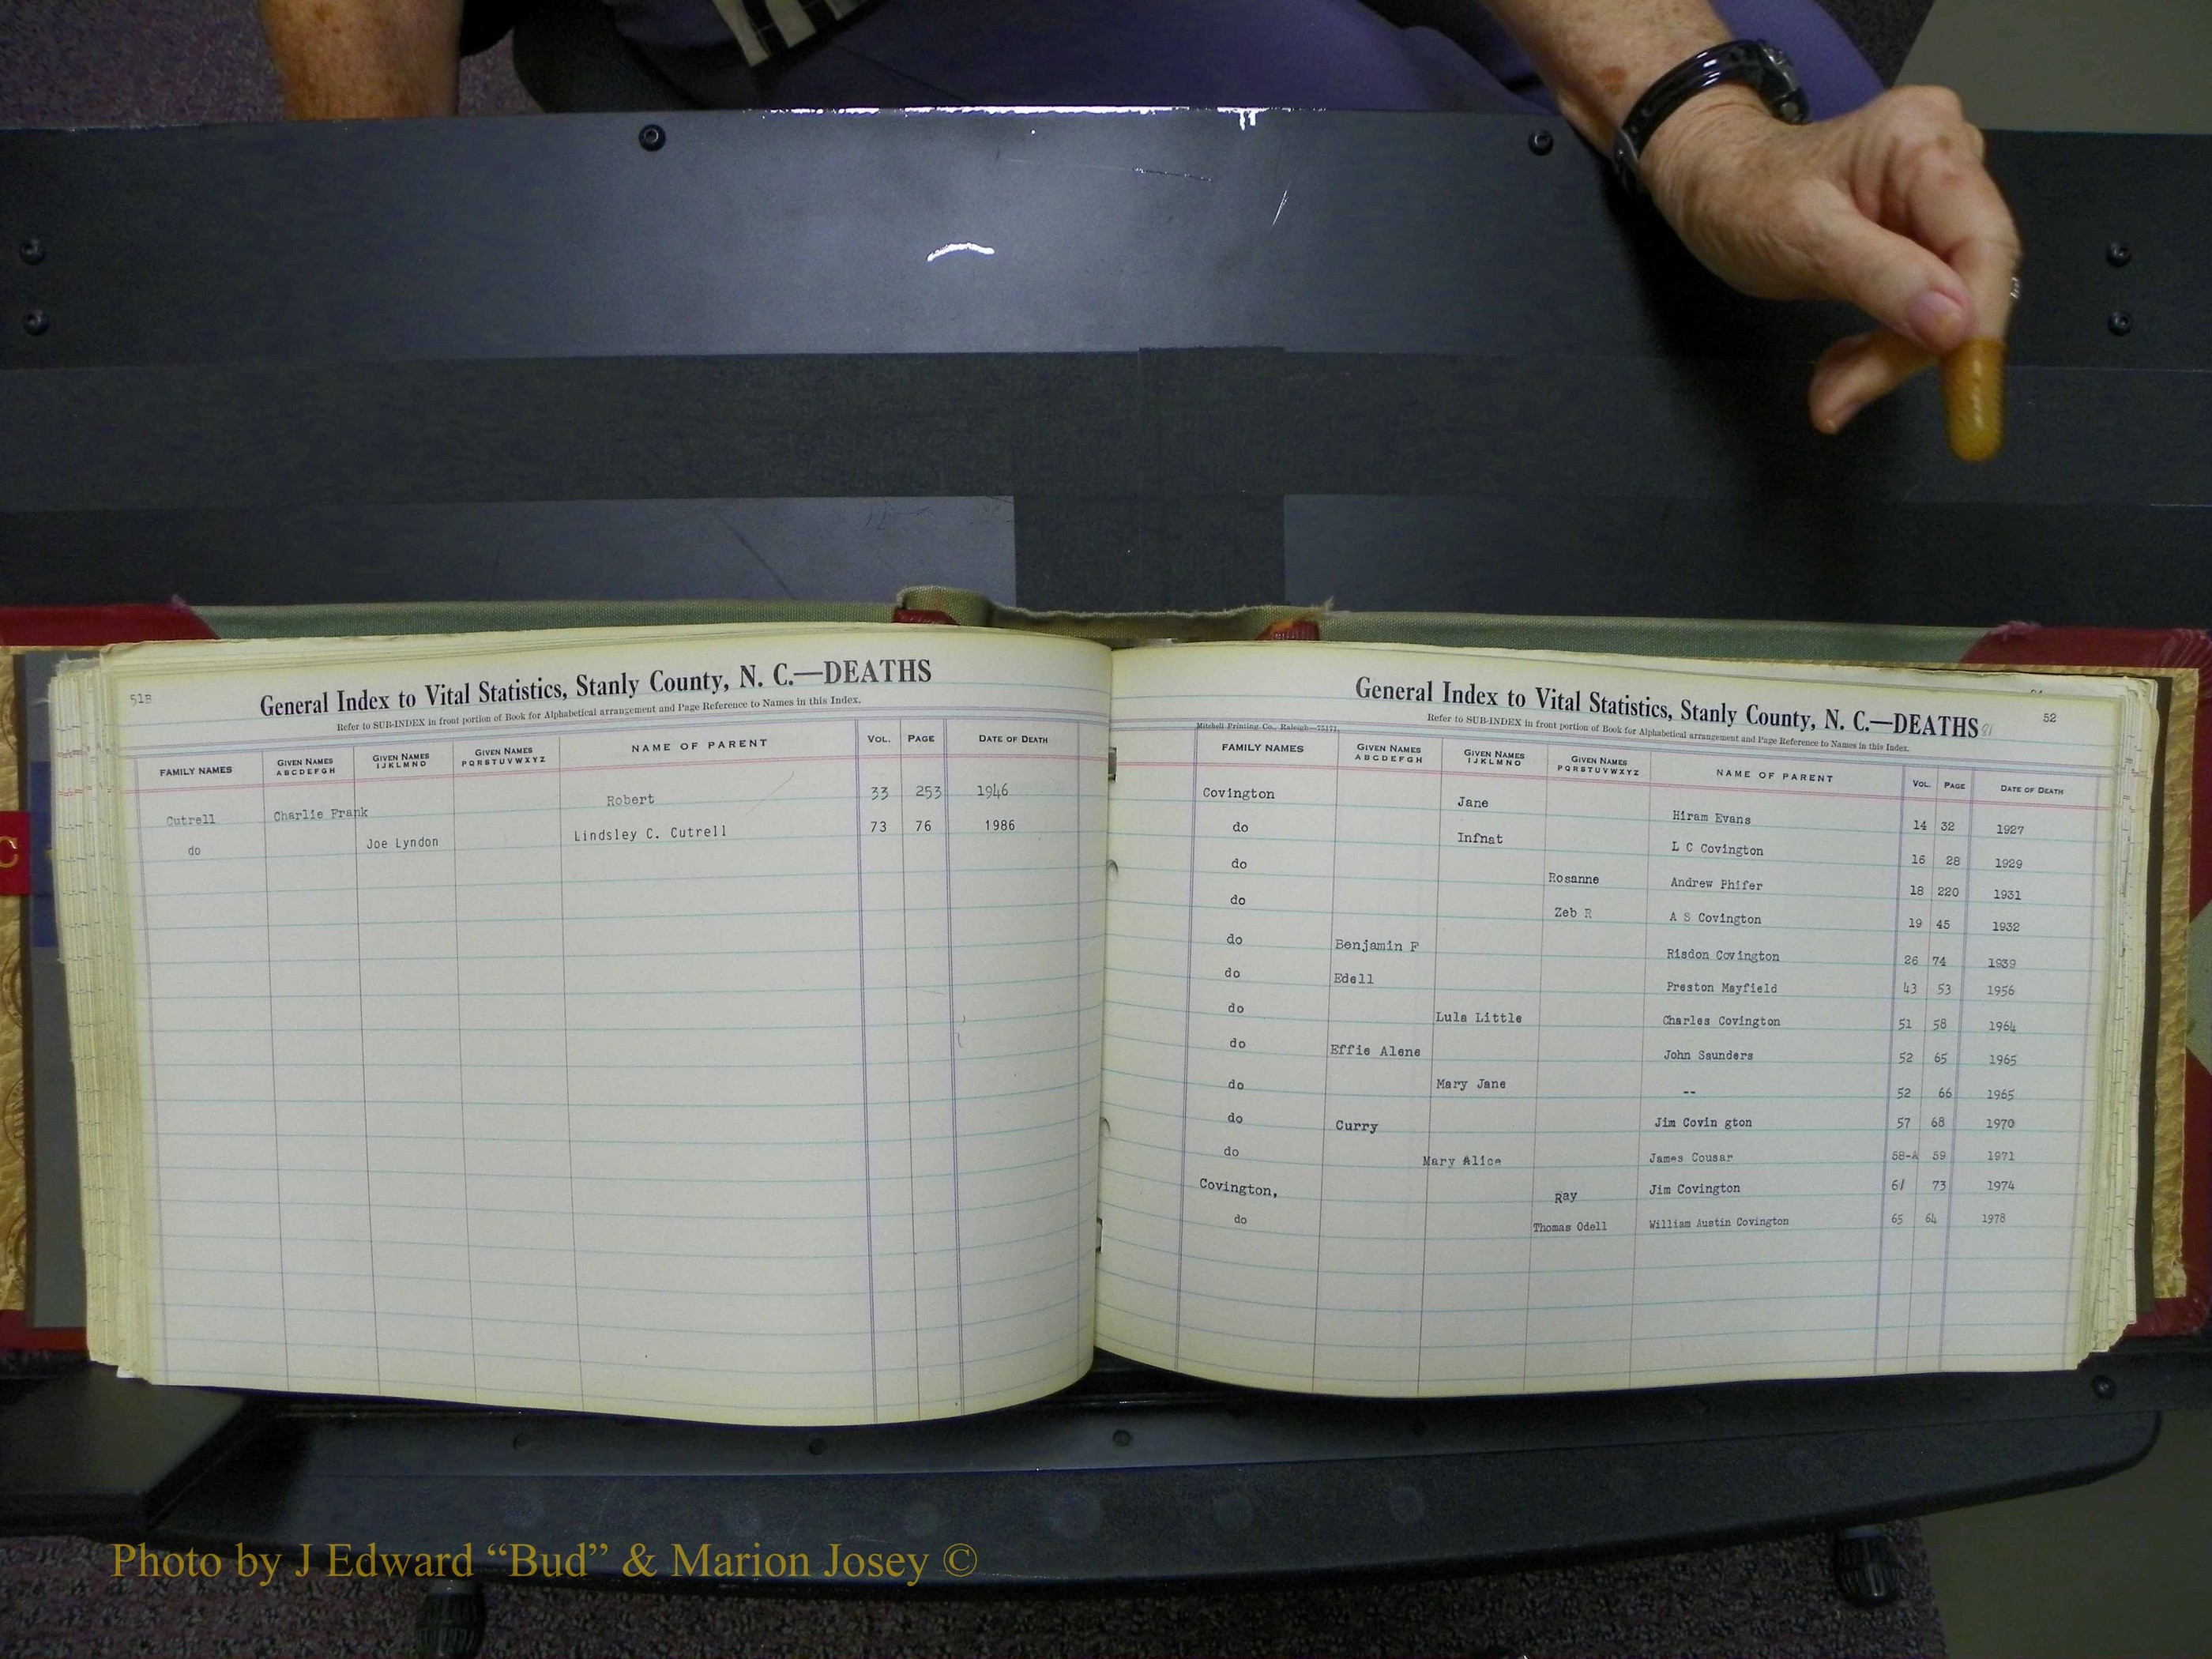 51B
General Index to Vital Statistics, Stanly County, N. C.—DEATHS
Refer to SUB-INDEX in front portion of Book for Alphabetical arrangement and Page Reference to Names in this Index.
FAMILY NAMES GIVEN NAMES ABCDEFGH GIVEN NAMES IJKLMNO GIVEN NAMES PQRSTUVWXYZ NAME OF PARENT VOL. PAGE DATE OF DEATH
Cutrell Charlie Frank Robert 33 253 1946
do Joe Lyndon Lindsley C. Cutrell 73 76 1986
C
52
General Index to Vital Statistics, Stanly County, N. C.—DEATHS
Mitchell Printing Co., Raleigh—75171
Refer to SUB-INDEX in front portion of Book for Alphabetical arrangement and Page Reference to Names in this Index.
FAMILY NAMES GIVEN NAMES ABCDEFGH GIVEN NAMES IJKLMNO GIVEN NAMES PQRSTUVWXYZ NAME OF PARENT VOL. PAGE DATE OF DEATH
Covington Jane Hiram Evans 14 32 1927
do Infnat L C Covington 16 28 1929
do Rosanne Andrew Phifer 18 220 1931
do Zeb R A S Covington 19 45 1932
do Benjamin F Risdon Covington 26 74 1939
do Edell Preston Mayfield 43 53 1956
do Lula Little Charles Covington 51 58 1964
do Effie Alene John Saunders 52 65 1965
do Mary Jane -- 52 66 1965
do Curry Jim Covin gton 57 68 1970
do Mary Alice James Cousar 58-A 59 1971
Covington, Ray Jim Covington 61 73 1974
do Thomas Odell William Austin Covington 65 64 1978
Photo by J Edward “Bud” & Marion Josey ©